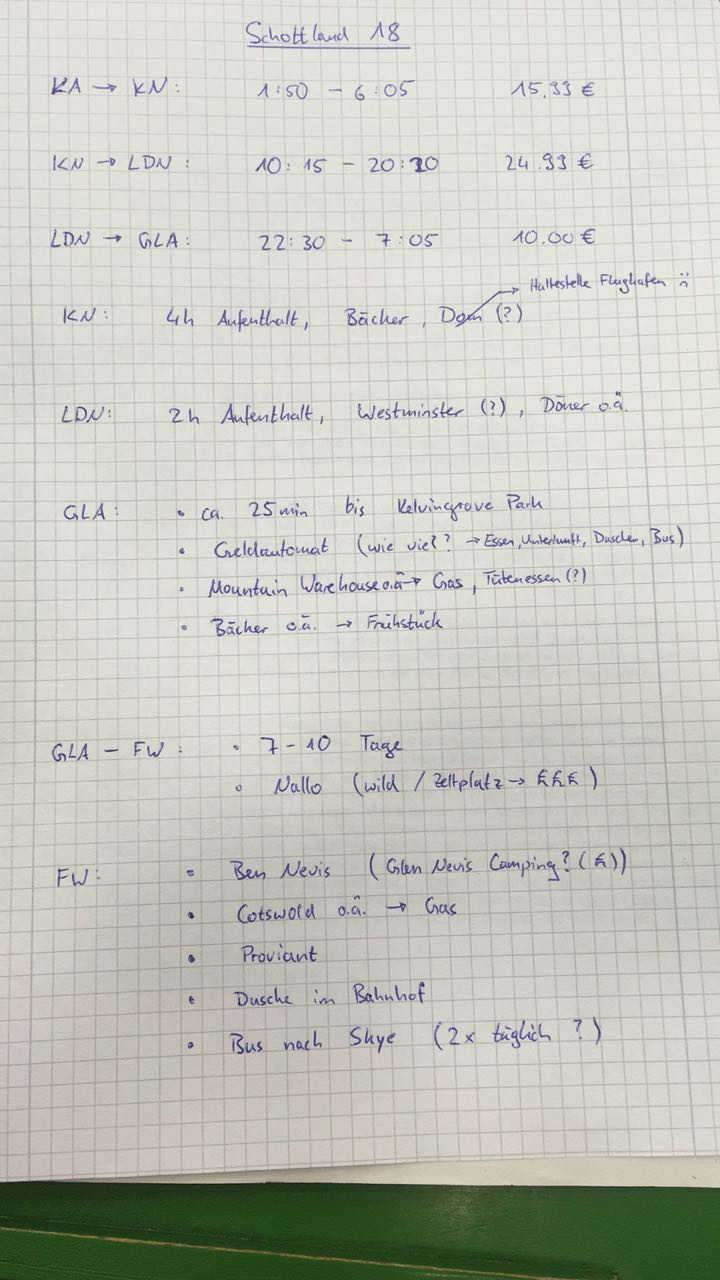 Schottland 18
KA → KN: 1:50 - 6:05 15.99 €
KN → LDN: 10:15 - 20:20 24.99 €
LDN → GLA: 22:30 - 7:05 10.00 €
→ Haltestelle Flughafen :(
KN: 4h Aufenthalt, Bäcker, Dom (?)
LDN: 2h Aufenthalt, Westminster (?), Döner o.ä.
GLA: • ca. 25min bis Kelvingrove Park
• Geldautomat (wie viel? → Essen, Unterkunft, Duschen, Bus)
• Mountain Warehouse o.ä → Gas, Tütenessen (?)
• Bäcker o.ä. → Frühstück
GLA - FW: • 7-10 Tage
• Nallo (wild / Zeltplatz → £££)
FW: • Ben Nevis (Glen Nevis Camping? (£))
• Cotswold o.ä. → Gas
• Proviant
• Dusche im Bahnhof
• Bus nach Skye (2x täglich ?)